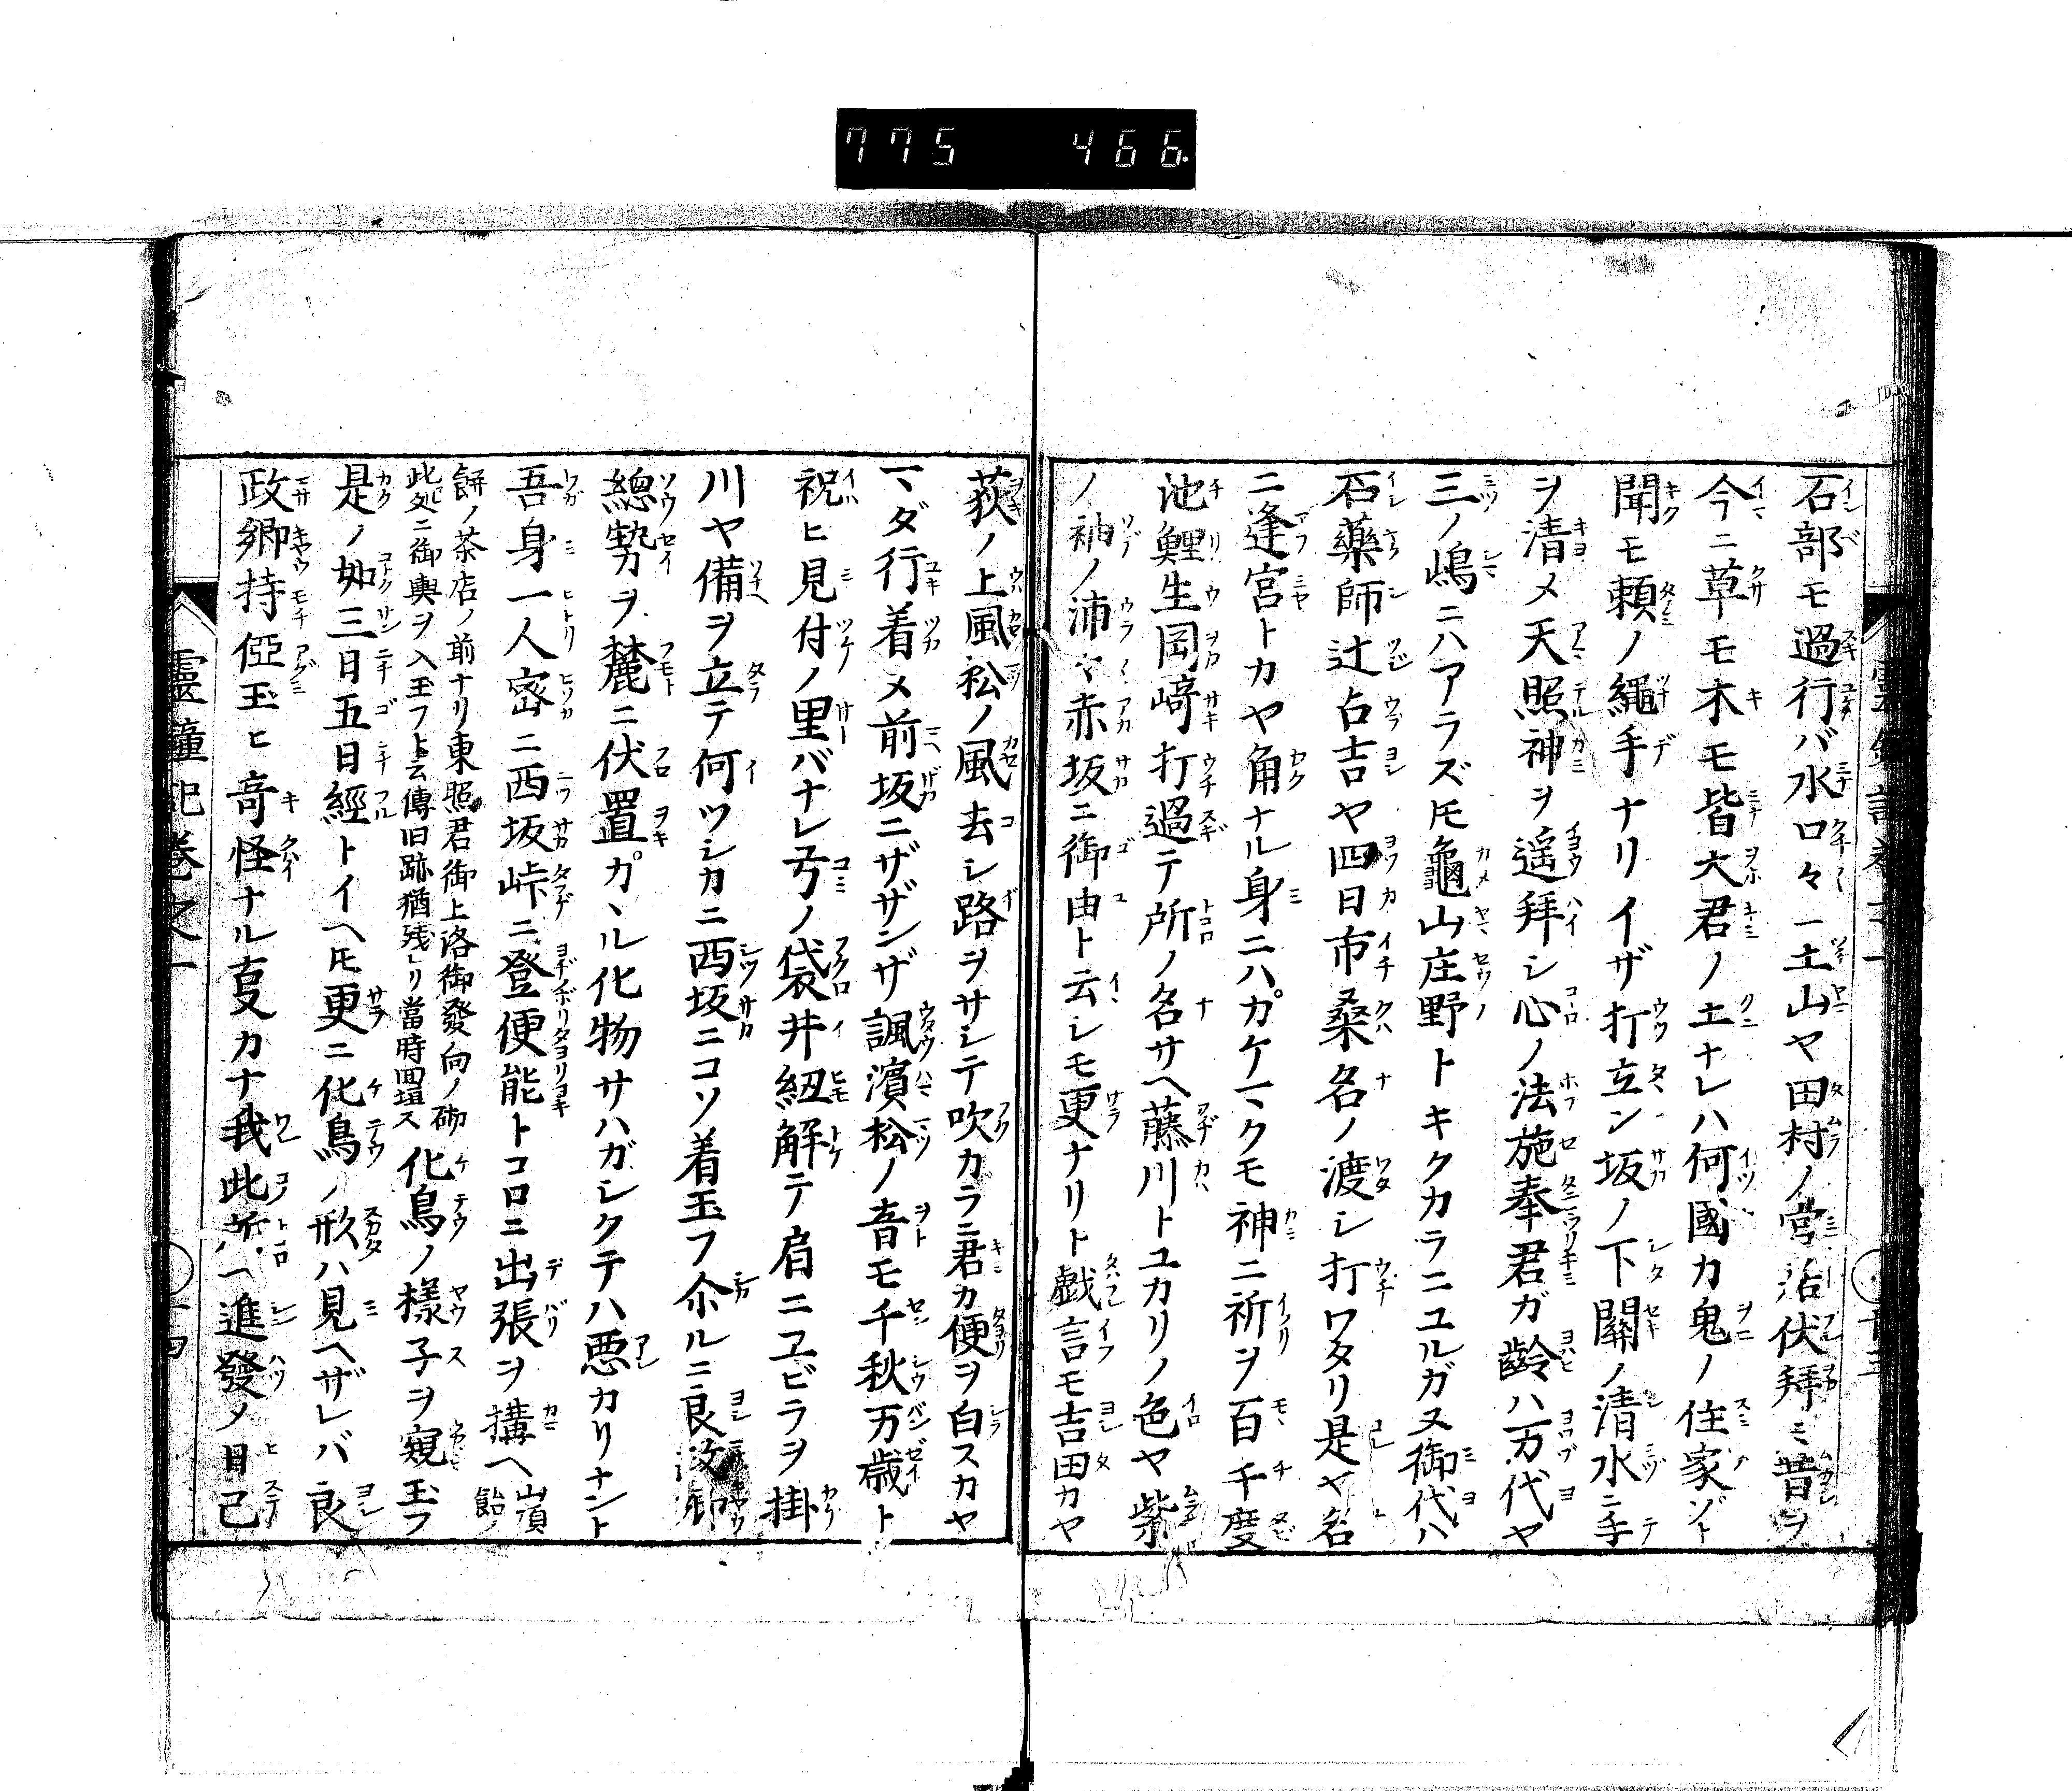 775 466
石部モ過行バ水口々一土山ヤ田村ノ宮居伏拜ミ昔ヲ
今ニ草モ木モ皆大君ノ土ナレハ何國カ鬼ノ住家ゾト
聞モ頼ノ繩手ナリイザ打立ン坂ノ下關ノ清水ニ手
ヲ清メ天照神ヲ遥拜シ心ノ法施奉君ガ齡ハ万代ヤ
三ノ嶋ニハアラズ𪜈龜山庄野トキクカラニユルガヌ御代ハ
石藥師辻占吉ヤ四日市桑名ノ渡シ打ワタリ是ヤ名
ニ逢宮トカヤ角ナル身ニハカケマクモ神ニ祈ヲ百千度
池鯉生岡﨑打過テ所ノ名サヘ藤川トユカリノ色ヤ紫
ノ袖ノ浦々赤坂ニ御由ト云シモ更ナリト戯言モ吉田カヤ
荻ノ上風松ノ風去シ路ヲサシテ吹カラニ君カ便ヲ白スカヤ
マダ行着メ前坂ニザザンザ諷濱松ノ音モ千秋万歳ト
祝ヒ見付ノ里バナレ弓ノ袋井紐解テ肩ニユビラヲ掛
川ヤ備ヲ立テ何ツシカニ西坂ニコソ着玉フ尒ルニ良政卿
總勢ヲ麓ニ伏置カヽル化物サハガシクテハ悪カリナント
吾身一人密ニ西坂峠ニ登便能トコロニ出張ヲ搆ヘ山頂飴ノ
餅ノ茶店ノ前ナリ東照君御上洛御發向ノ砌
此処ニ御輿ヲ入玉フト云傳旧跡猶残レリ當時四垣ス
化鳥ノ様子ヲ窺玉フ
是ノ如三日五日經トイヘ𪜈更ニ化鳥ノ形ハ見ヘザレバ良
政卿持俹玉ヒ竒怪ナル叓カナ我此所ヘ進發ノ日已